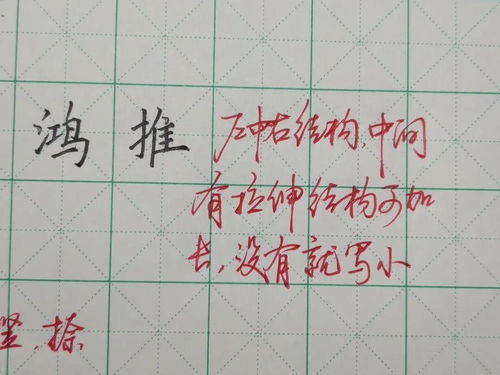 鸿 推 左中右结构,中间
有拉伸结构可加
长,没有就写小
竖、捺